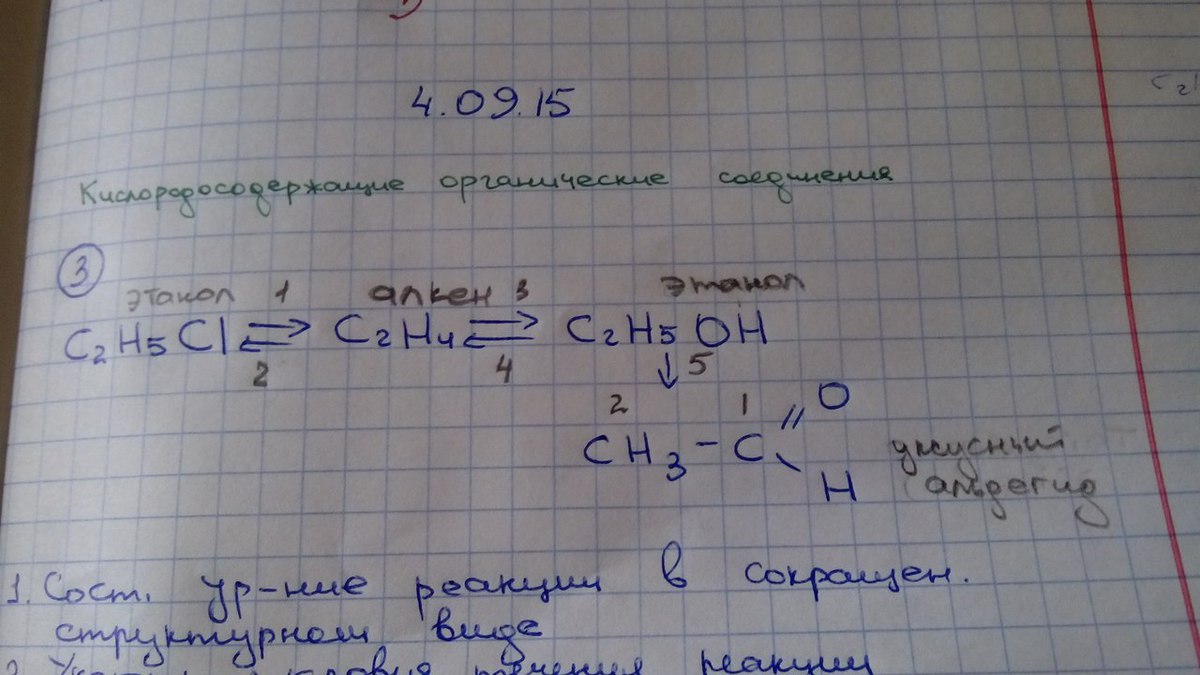 4.09.15
Кислородосодержащие органические соединения
3
этанол 1 алкен 3 этанол
C₂H₅Cl ⇄ C₂H₄ ⇄ C₂H₅OH
2 4 ↓ 5
2 1 O
CH₃ – C // \ уксусный
H альдегид
1. Сост. ур-ние реакции в сокращен.
структурном виде
2. течения реакции